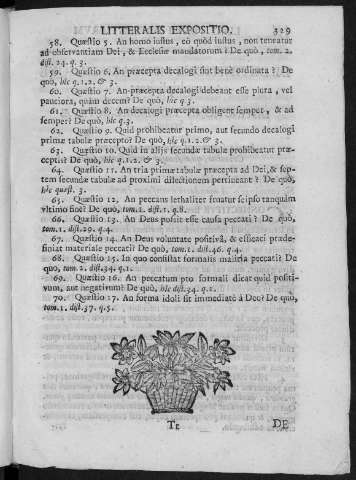 LITTERALIS EXPOSITIO. 329
58. Quæstio 5. An homo iustus, eò quòd iustus, non teneatur
ad observantiam Dei, & Ecclesiæ mandatorum? De quò, tom. 2.
dist. 24. q. 3.
59. Quæstio 6. An præcepta decalogi sint benè ordinata? De
quò, hìc q. 1. 2. & 3.
60. Quæstio 7. An præcepta decalogi debeant esse plura, vel
pauciora, quàm decem? De quò, hìc q 3.
61. Quæstio 8. An decalogi præcepta obligent semper, & ad
semper? De quò, hìc q. 3.
62. Quæstio 9. Quid prohibeatur primo, aut secundo decalogi
primæ tabulæ præcepto? De quò, hìc q. 1. 2. & 3.
63. Quæstio 10. Quid in alijs secundæ tabulæ prohibeatur præ-
ceptis? De quò, hìc q. 1. 2. & 3.
64. Quæstio 11. An tria primæ tabulæ præcepta ad Dei, & sep-
tem secundæ tabulæ ad proximi dilectionem pertineant? De quò,
hìc quæst. 3.
65. Quæstio 12. An peccans lethaliter fruatur seipso tanquàm
vltimo fine? De quò, tom. 1. dist. 1. q. 8.
66. Quæstio 13. An Deus possit esse causa peccati? De quò,
tom. 1. dist. 29. q. 4.
67. Quæstio 14. An Deus voluntate positivâ, & efficaci præde-
finiat materiale peccati? De quò, tom. 1. dist. 46. q. 4.
68. Quæstio 15. In quo consistat formalis malitia peccati? De
quò, tom. 2. dist. 34. q. 1.
69. Quæstio 16. An peccatum pro formali dicat quid positi-
vum, aut negativum? De quò, hìc dist. 34. q. 1.
70. Quæstio 17. An forma idoli sit immediatè à Deo? De quò,
tom. 1. dist. 37. q. 5.
Tt DE